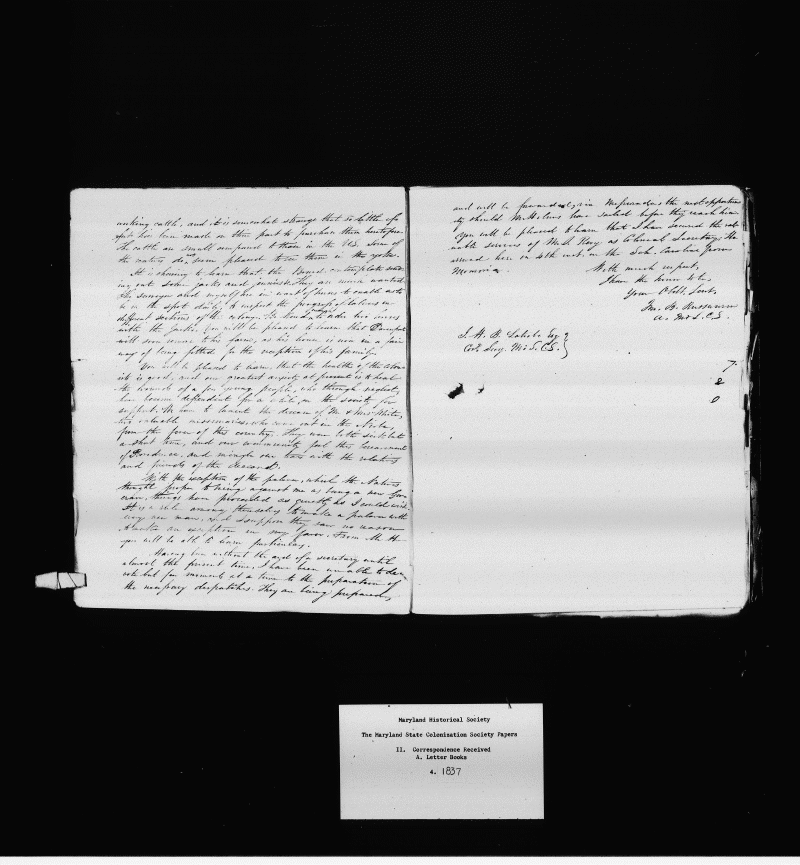 working cattle, and it is somewhat strange that so little ef-
forts has been made on their part to purchase them heretofore
The cattle are small compared to those in the U.S. Some of
the natives seem pleased to see them in the yokes.
It is cheering to learn that the Board contemplate send-
ing out some jacks and jennies. They are much wanted
The surveyor and myself are in want of horses to enable us to
be on the spot daily, to inspect the progress of labors in
different sections of the colony. to order two horses
with the Jacks. You will be pleased to learn that Davenport
will soon remove to his farm, as his house is now in a fair
way of being fitted for the reception of his family.
You will be pleased to learn that the health of the colon-
ists is good, and our greatest anxiety at present is to heal
the wounds of a few young people, who through neglect,
have become dependent for a while, on the society for
support. We have to lament the decease of Mr & Mrs White,
two valuable missionaries who came out in the Niobe,
from the fever of this country. They were both sick but
a short time, and our community feel this bereavement
of Providence, and mingle our tears with the relatives
and friends of the deceased.
With the exception of the palaver, which the natives
thought proper to bring against me as being a new Gov-
ernor, things have proceeded as quietly as I could wish
It is a rule among themselves to make a palaver with
every new man, and I suppose they saw no reason
to make an exception in my favor. From Mr H.
you will be able to learn particulars.
Having been without the aid of a secretary until
almost the present time, I have been unable to dev-
ote but few moments at a time to the preparation of
the necessary despatches. They are being prepared,
and will be forwarded via Mesurado by the next opportuni-
ty should Mr have sailed before they reach him
You will be pleased to learn that I have secured the valu-
able services of Mr Revey as Colonial Secretary. He
arrived here on 4th inst. in the Sch. Caroline from
Monrovia.
With much respect,
I have the honor to be,
Your Obdt. Servt.
Jno. B. Russwurm
A. Md S. C. S.
J. H. B. Latrobe Esq
Cor. Secy. Md S. C. S.
7
2
0
Maryland Historical Society
The Maryland State Colonization Society Papers
II. Correspondence Received
A. Letter Books
4. 1837